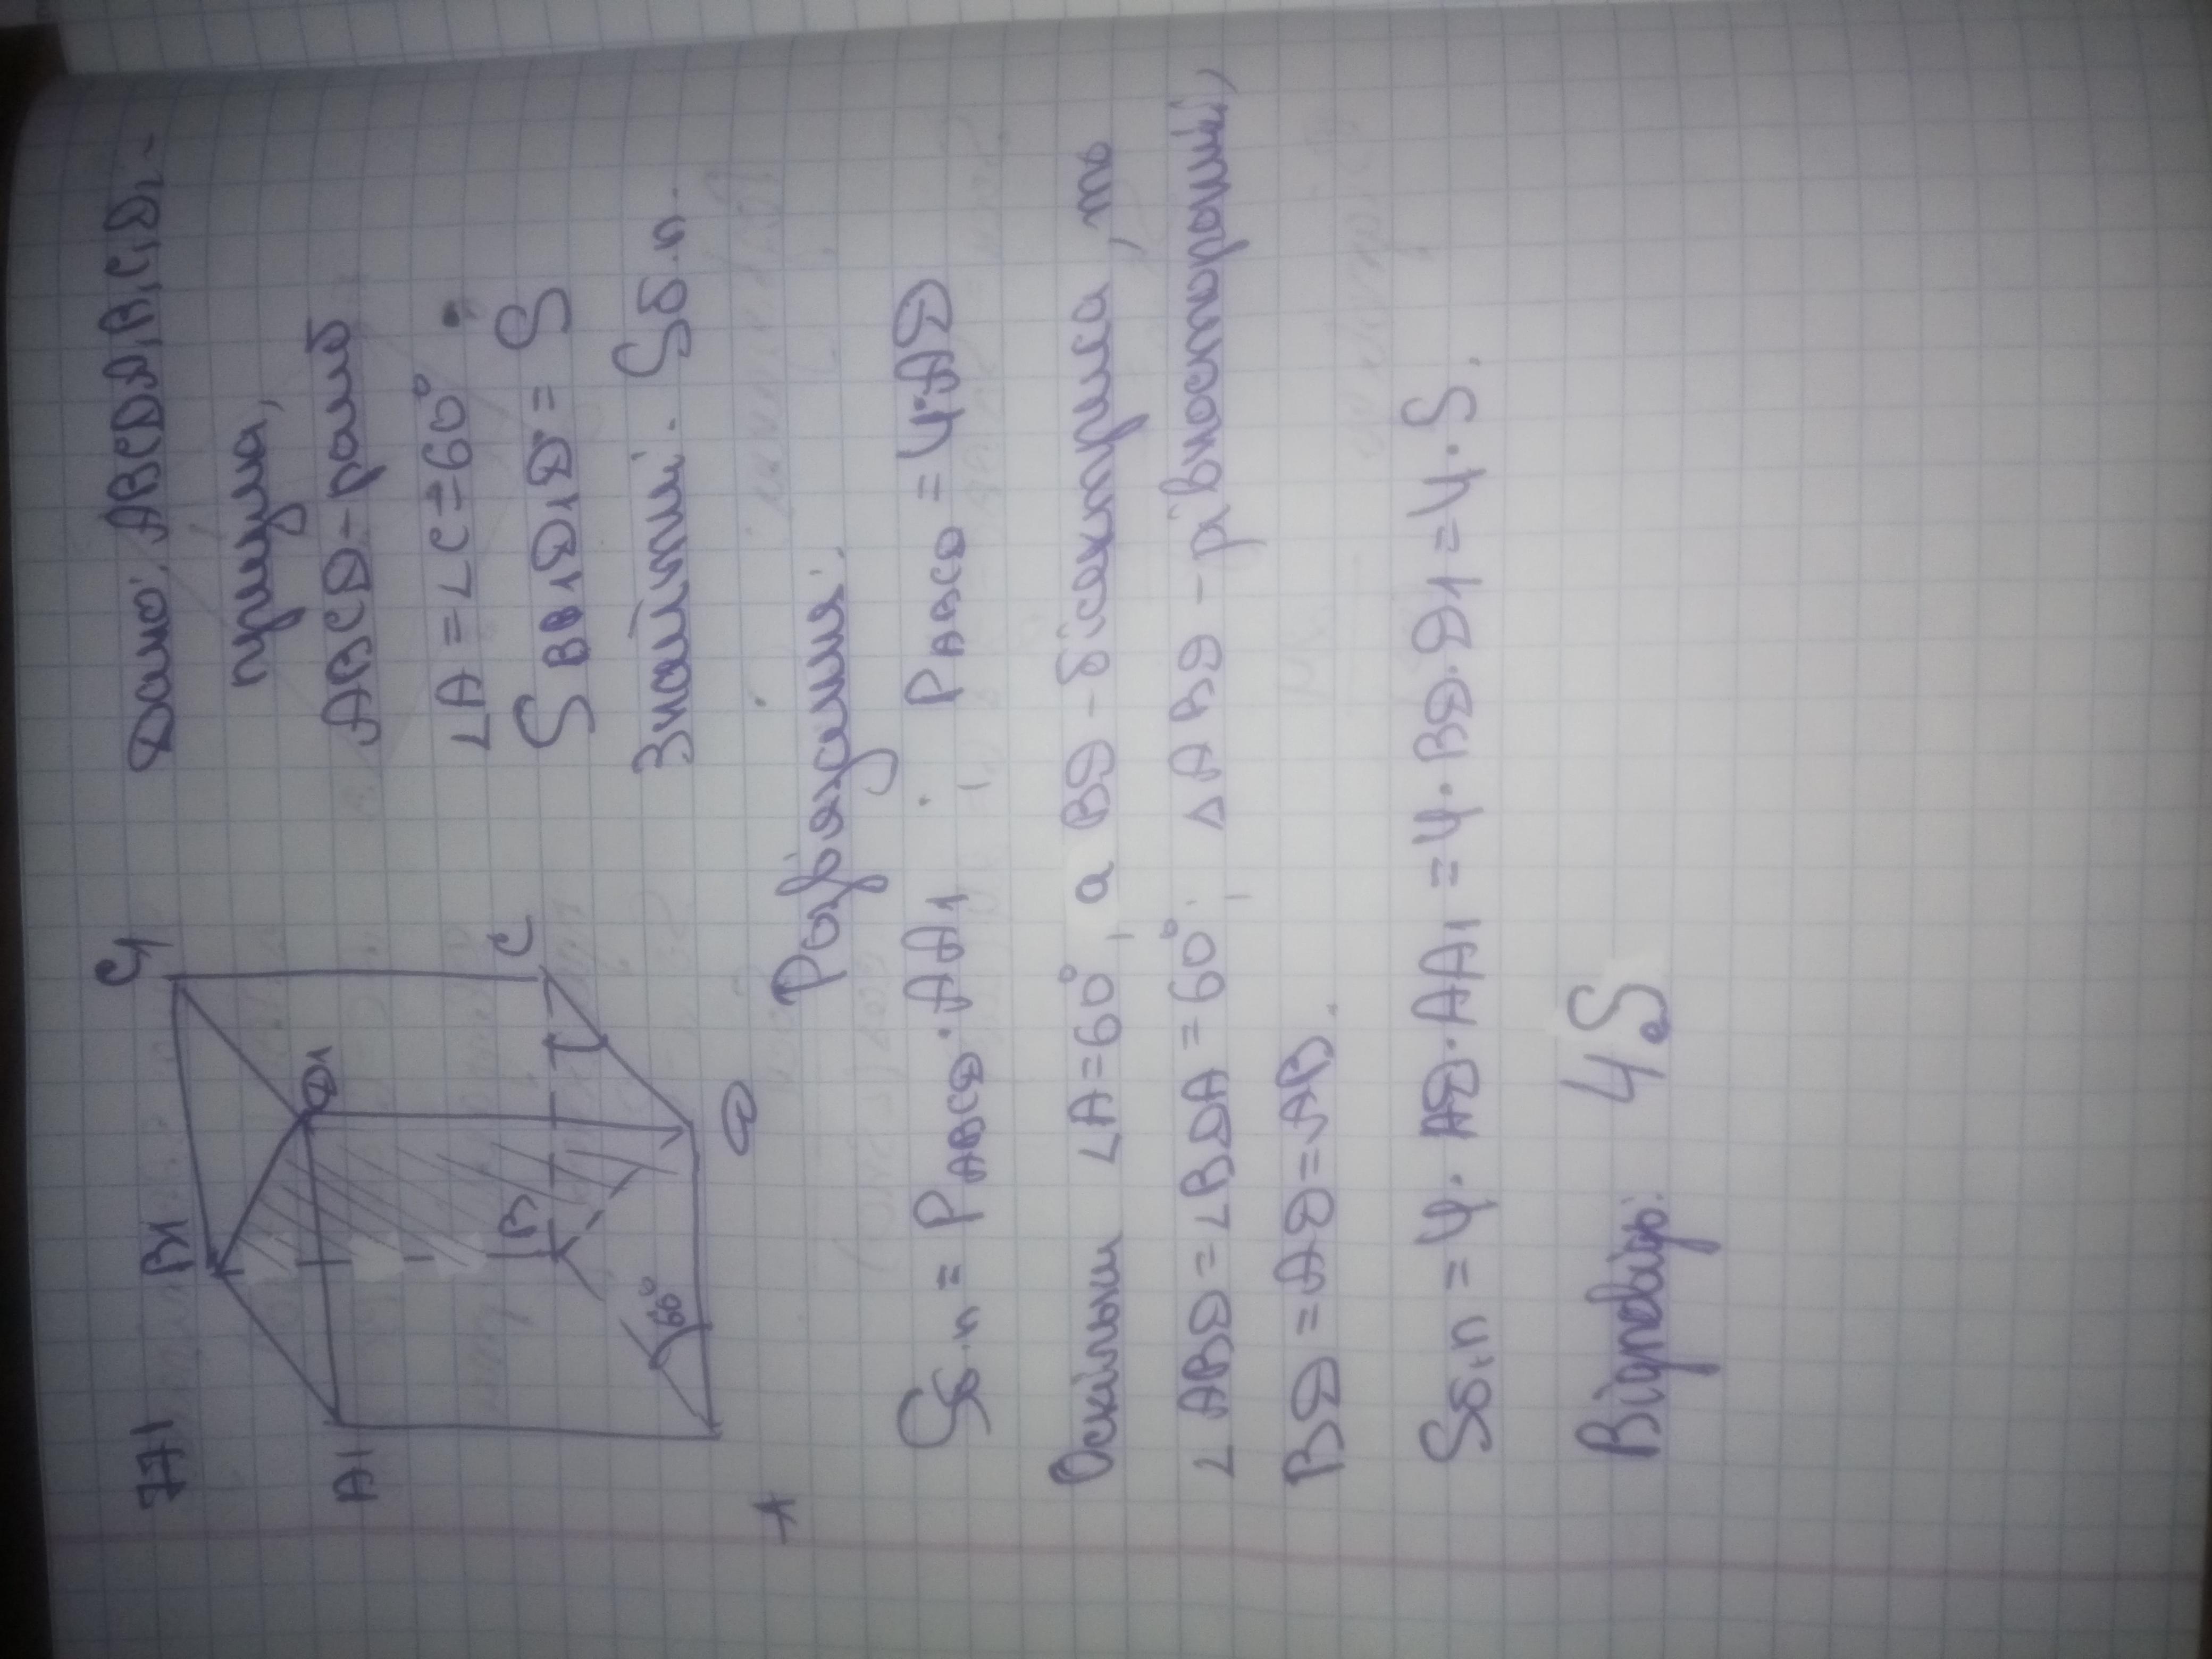 771
B1
C1
A1
D1
B
C
60°
A
D
Дано: ABCDA1B1C1D1-
призма,
ABCD-ромб
∠A=∠C=60°
S BB1D1D = S
Знайти: Sб.п.
Розв'язання:
Sб.п = PABCD·AA1 ; PABCD=4·AD
Оскільки ∠A=60°, а BD-бісектриса, то
∠ABD=∠BDA=60°; ΔABD-рівносторонній,
BD=AD=AB.
Sб.п=4·AD·AA1=4·BD·D1=4·S.
Відповідь: 4S